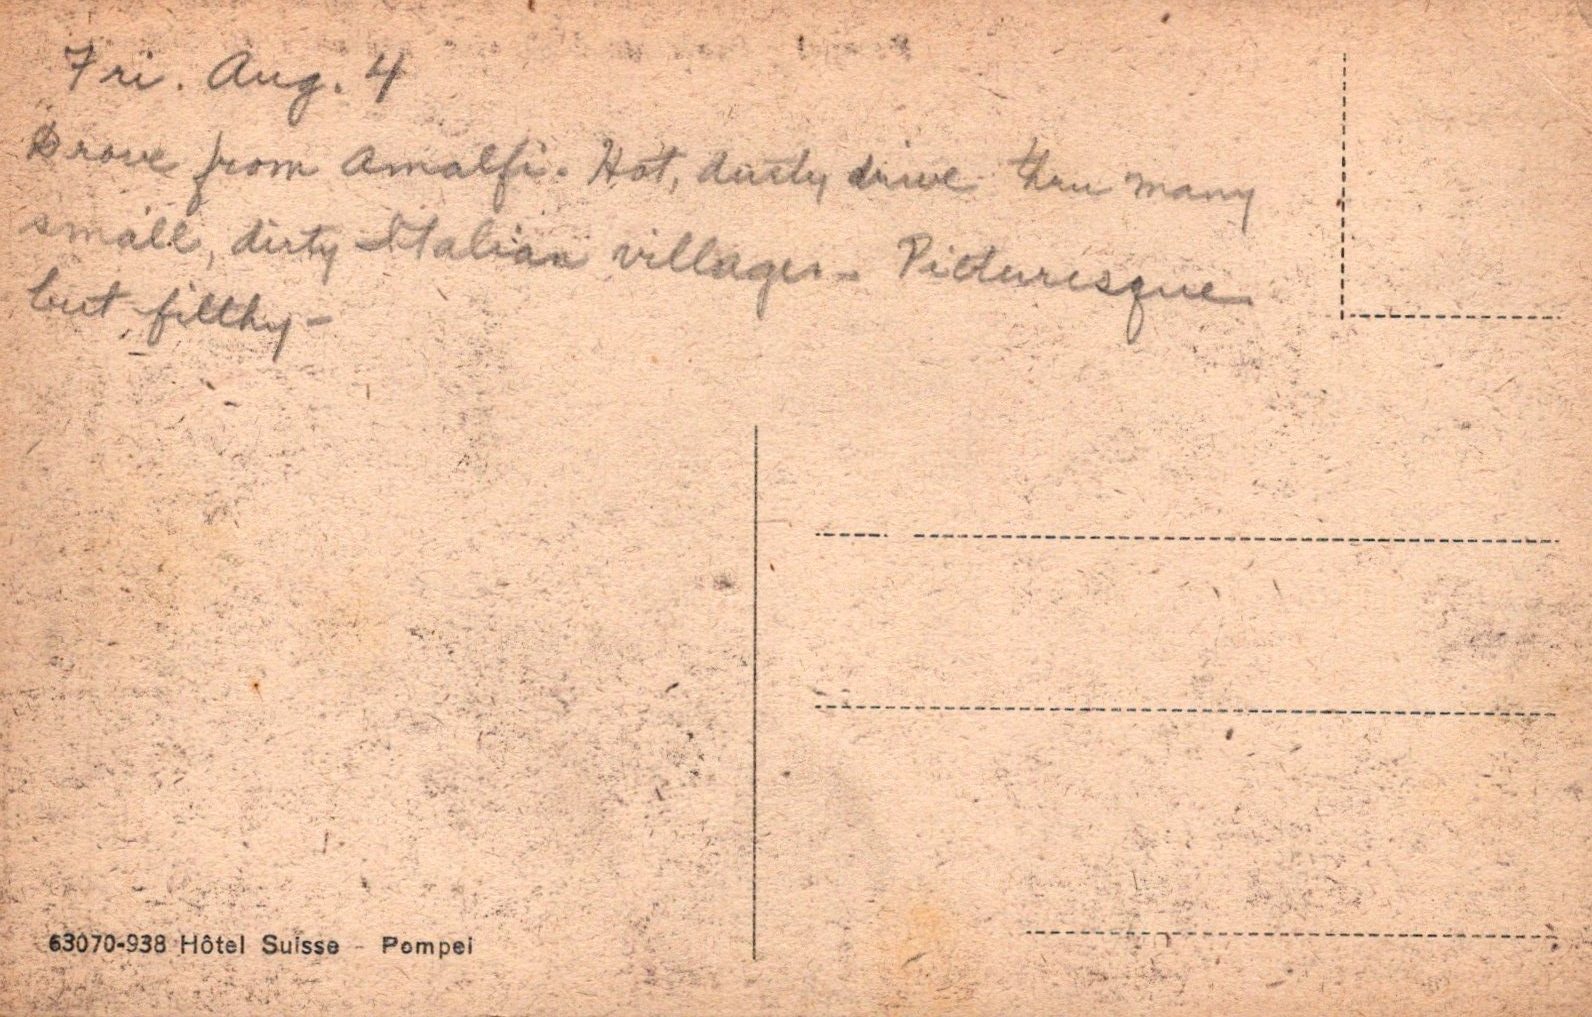 Fri. Aug. 4
Drove from Amalfi. Hot, dusty drive thru many
small, dirty Italian villages - Picturesque
but filthy -
63070-938 Hôtel Suisse - Pompei